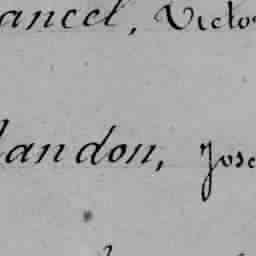 ancel, Victo
landon, Jose